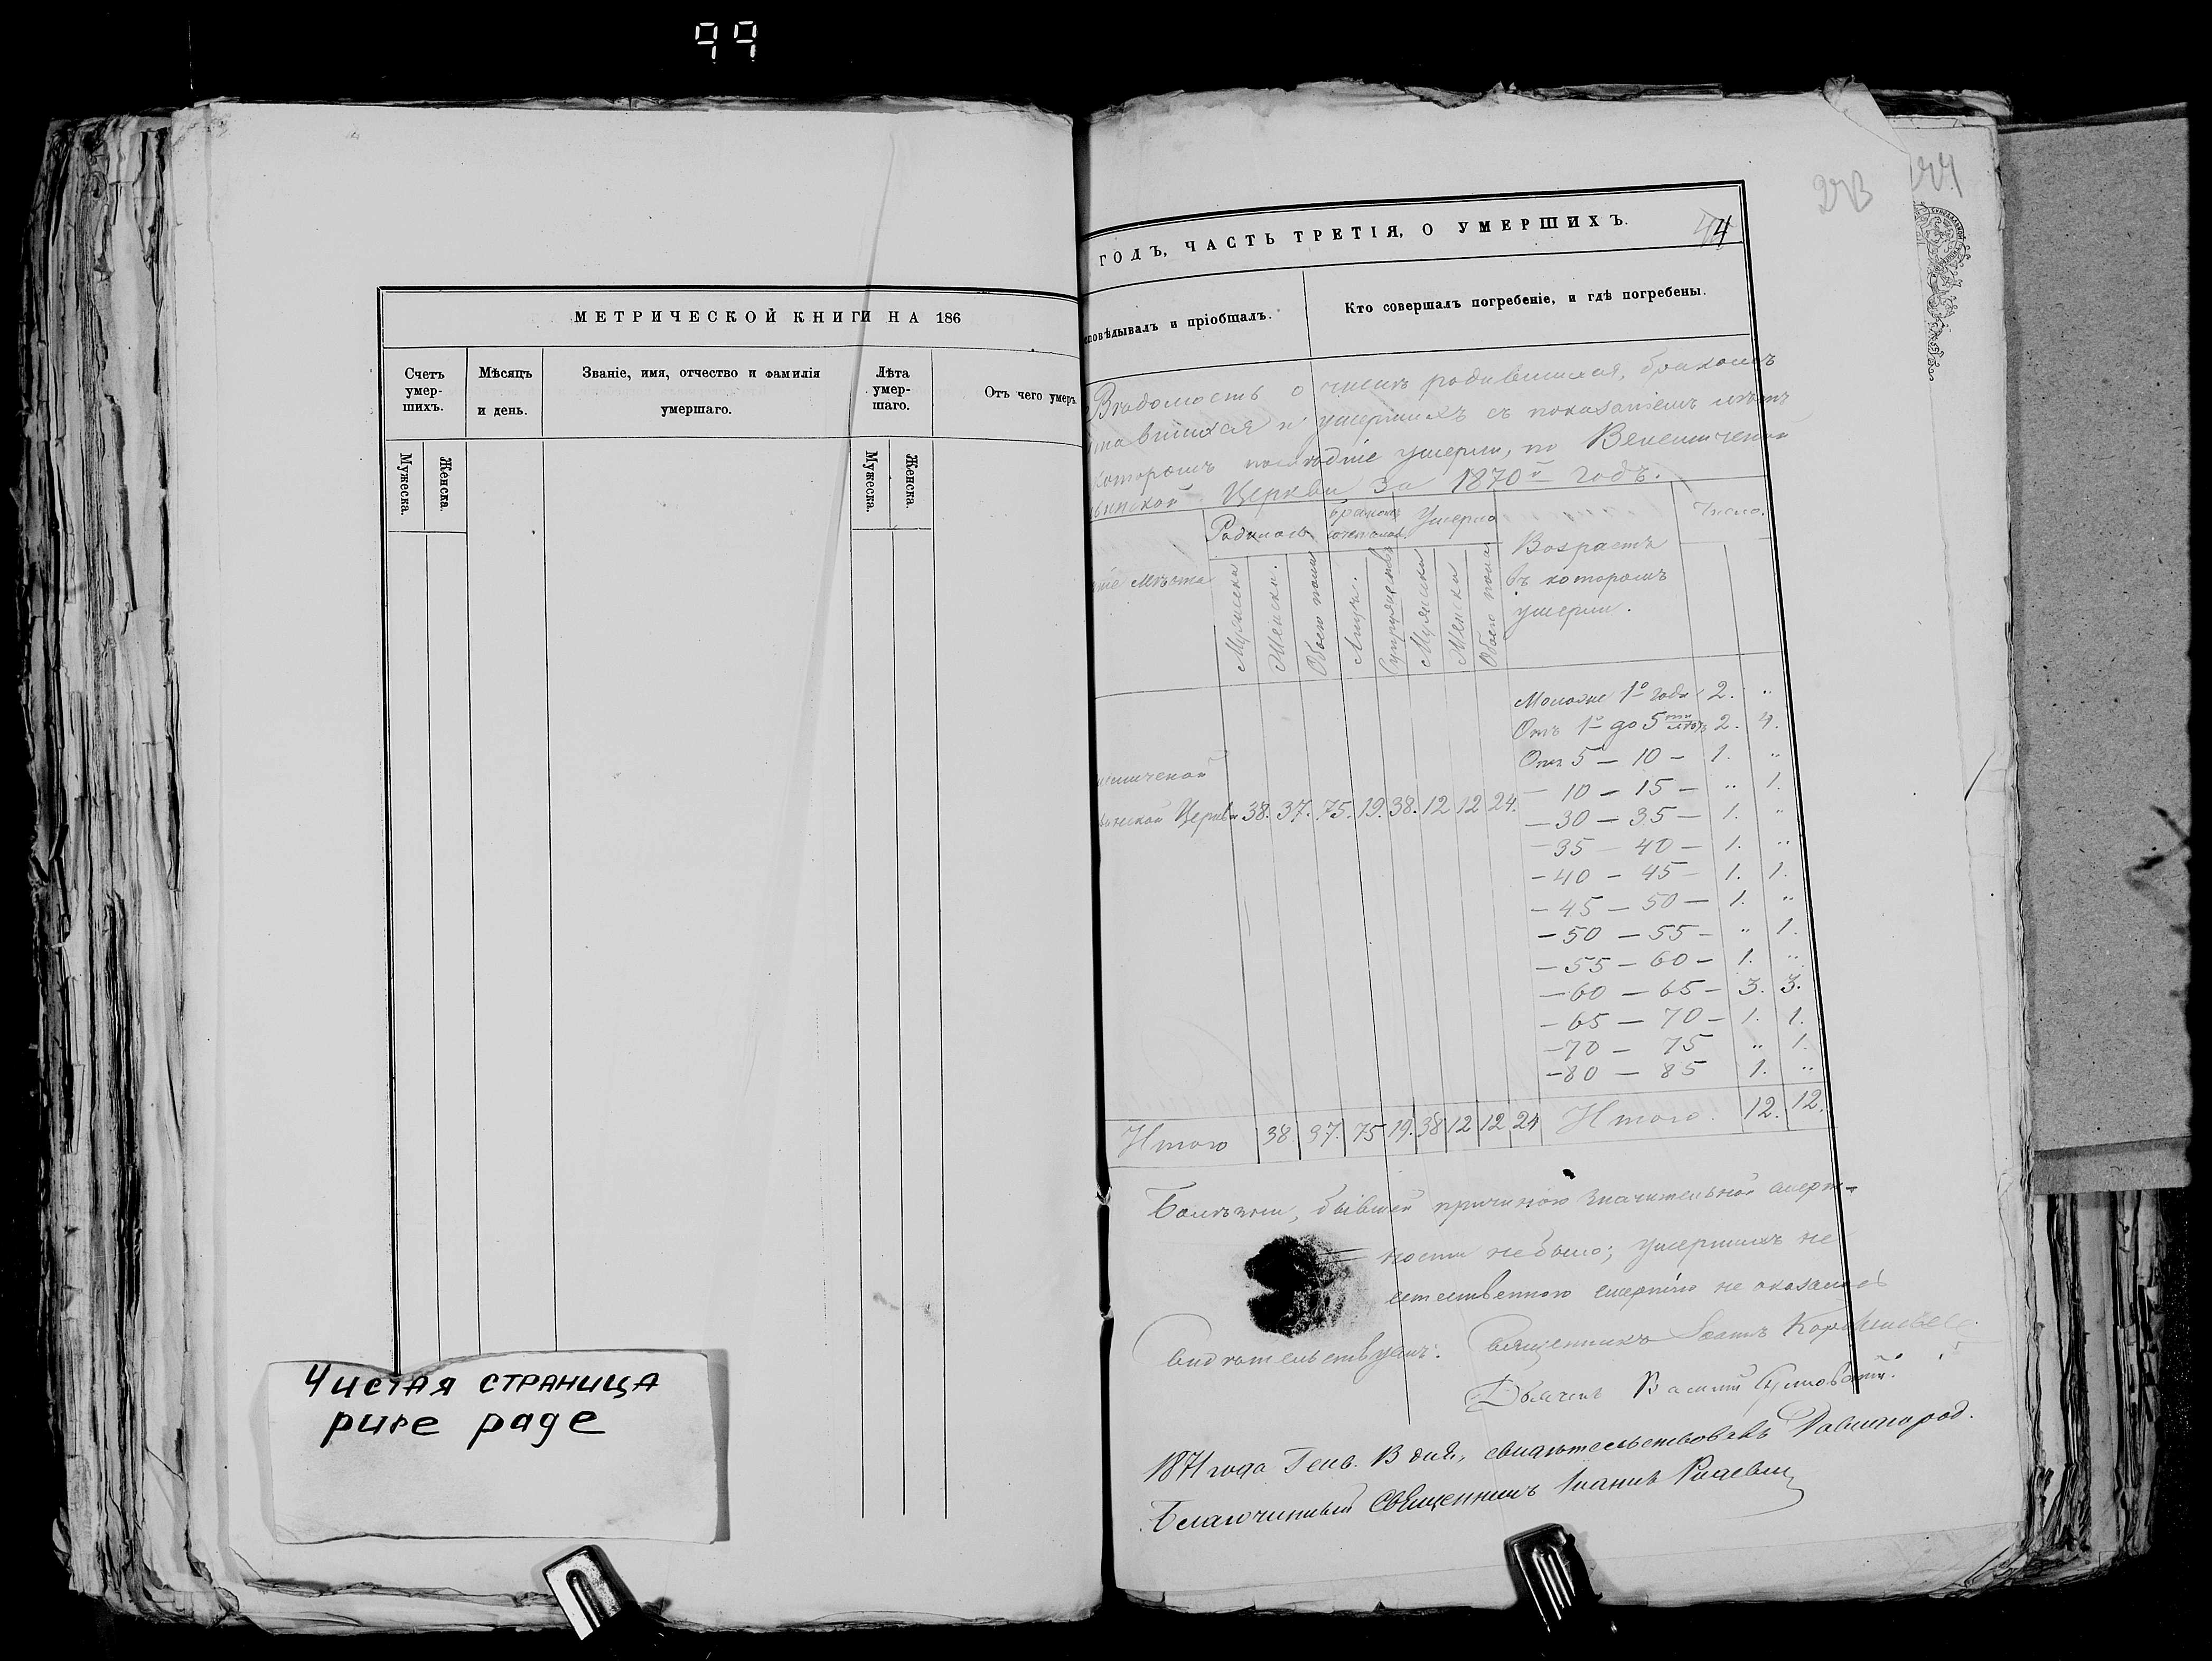 99
МЕТРИЧЕСКОЙ КНИГИ НА 186
Счетъ умер- шихъ.
Мѣсяцъ и день.
Званіе, имя, отчество и фамилія умершаго.
Лѣта умер- шаго.
Отъ чего умеръ.
Мужеска.
Женска.
Мужеска.
Женска.
Чистая страница
pure page
ГОДЪ, ЧАСТЬ ТРЕТІЯ, О УМЕРШИХЪ.
44
повѣдывалъ и пріобщалъ.
Кто совершалъ погребеніе, и гдѣ погребены.
Вѣдомость о числѣ родившихся, бракомъ
тавшихся и умершихъ съ показаніемъ лѣтъ
которомъ послѣдніе умерли, по
Церкви за 1870й годъ.
Родилось
бракомъ
Умерло
Возрастъ въ которомъ умерли.
Число.
Мѣста
Мужска
Женска.
Обоего пола
Лицъ.
Супружествъ
Мужска
Женска
Обоего пола
Моложе 1го года 2. "
Отъ 1го до 5ти лѣтъ 2. 4.
Отъ 5 — 10 — 1. "
— 10 — 15 — " 1.
— 30 — 35 — 1. "
— 35 — 40 — 1. "
— 40 — 45 — 1. 1.
— 45 — 50 — 1. "
— 50 — 55 — " 1.
— 55 — 60 — 1. "
— 60 — 65 — 3. 3.
— 65 — 70 — 1. 1.
— 70 — 75 " 1.
— 80 — 85 1. "
Церкви 38. 37. 75. 19. 38. 12 12 24.
Итого 38. 37. 75 19. 38 12 12 24 Итого. 12. 12.
Болѣзни, бывшей причиною значительной смерт-
ности не было; умершихъ не
естественною смертію не оказалось
Свидѣтельствуемъ: Священникъ
Дьячекъ Василій
1871 года Генв. 13 дня, свидѣтельствовалъ
Благочинный Священникъ Іоаннъ